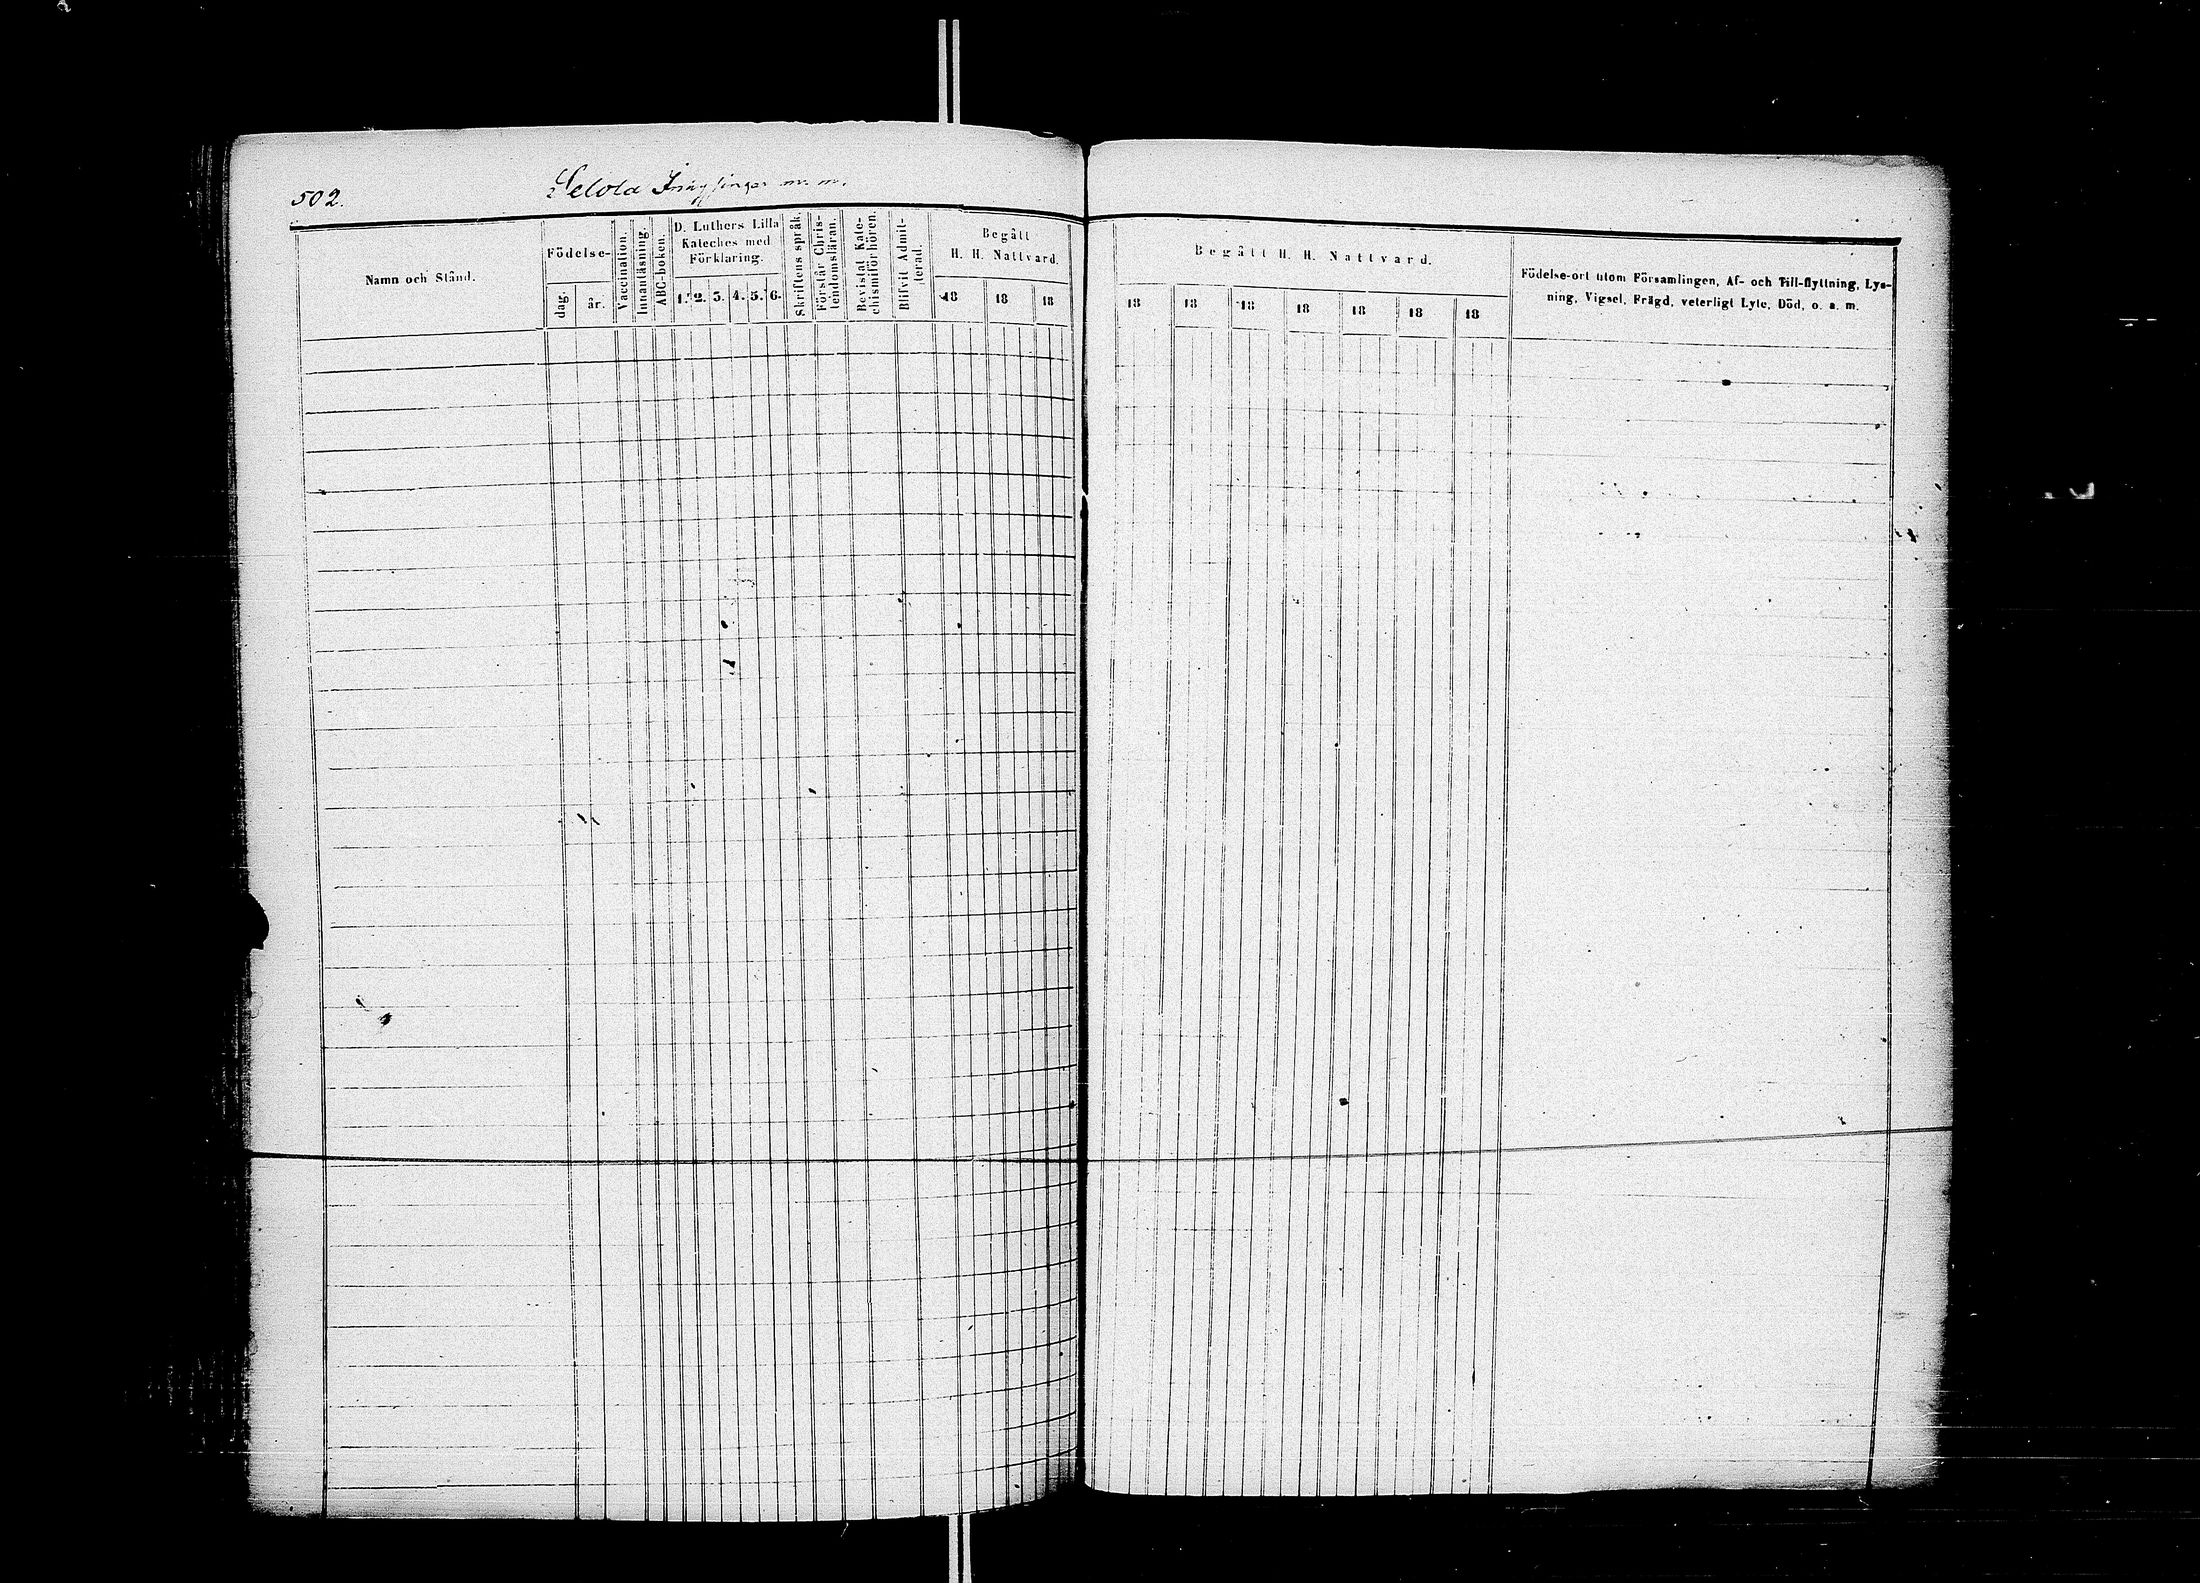 502.
Selola m. m.
Namn och Stånd.
Födelse-
dag.
år.
Vaccination.
Innanläsning.
ABC-boken.
D. Luthers Lilla
Kateches med
Förklaring.
1. 2. 3. 4. 5. 6.
Skriftens språk.
Förstår Chris-
tendomsläran.
Bevistat Kate-
chismiförhören.
Blifvit Admit-
terad.
Begått
H. H. Nattvard.
18 18 18
Begått H. H. Nattvard.
18 18 18 18 18 18 18
Födelse-ort utom Församlingen, Af- och Till-flyttning, Lys-
ning, Vigsel, Frägd, veterligt Lyte, Död, o. a. m.